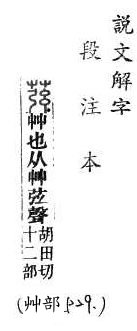 說文解字
段注本
艸也从艸弦聲
胡田切
十二部
(艸部 P29.)